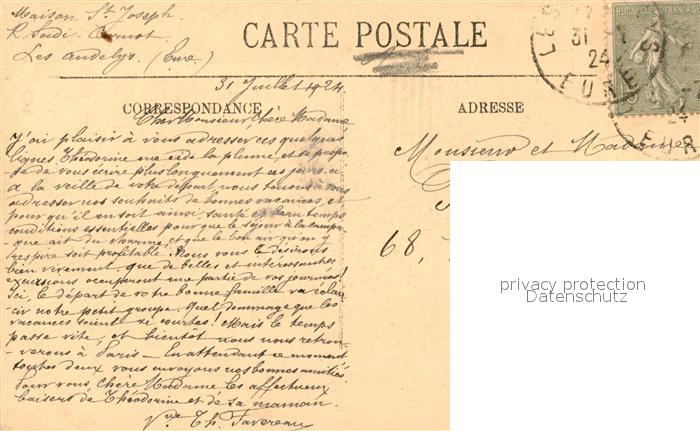 Maison St Joseph
R. Sadi-Carnot
Les Andelys. (Eure.)
CARTE POSTALE
REPUBLIQUE FRANÇAISE
LES
31
24
EURE
24
EUR
31 Juillet 1924.
CORRESPONDANCE
ADRESSE
Cher Monsieur, chère Madame
J'ai plaisir à vous adresser ces quelques
lignes. Théodorine me cède la plume, et se propo-
-se de vous écrire plus longuement ces jours-ci
à la veille de votre départ, nous tenons à vous
adresser nos souhaits de bonnes vacances, et
pour qu'il en soit ainsi, santé et beau temps
conditions essentielles pour que le séjour à la campa-
-gne ait du charme, et que le bon air qu'on y
respire soit profitable. Nous vous le désirons
bien vivement, que de belles et intéressantes
excursions occuperont une partie de vos journées!
Ici, le départ de votre bonne famille va éclair-
cir notre petit groupe. Quel dommage que les
vacances soient si courtes! Mais le temps
passe vite, et bientôt nous nous retrou-
-verons à Paris - En attendant ce moment
toutes deux vous envoyons nos bonnes amitiés.
Pour vous, Chère Madame les affectueux
baisers de Théodorine et de sa maman.
Vve Th. Favereau
Monsieur et Madame
68,
privacy protection
Datenschutz